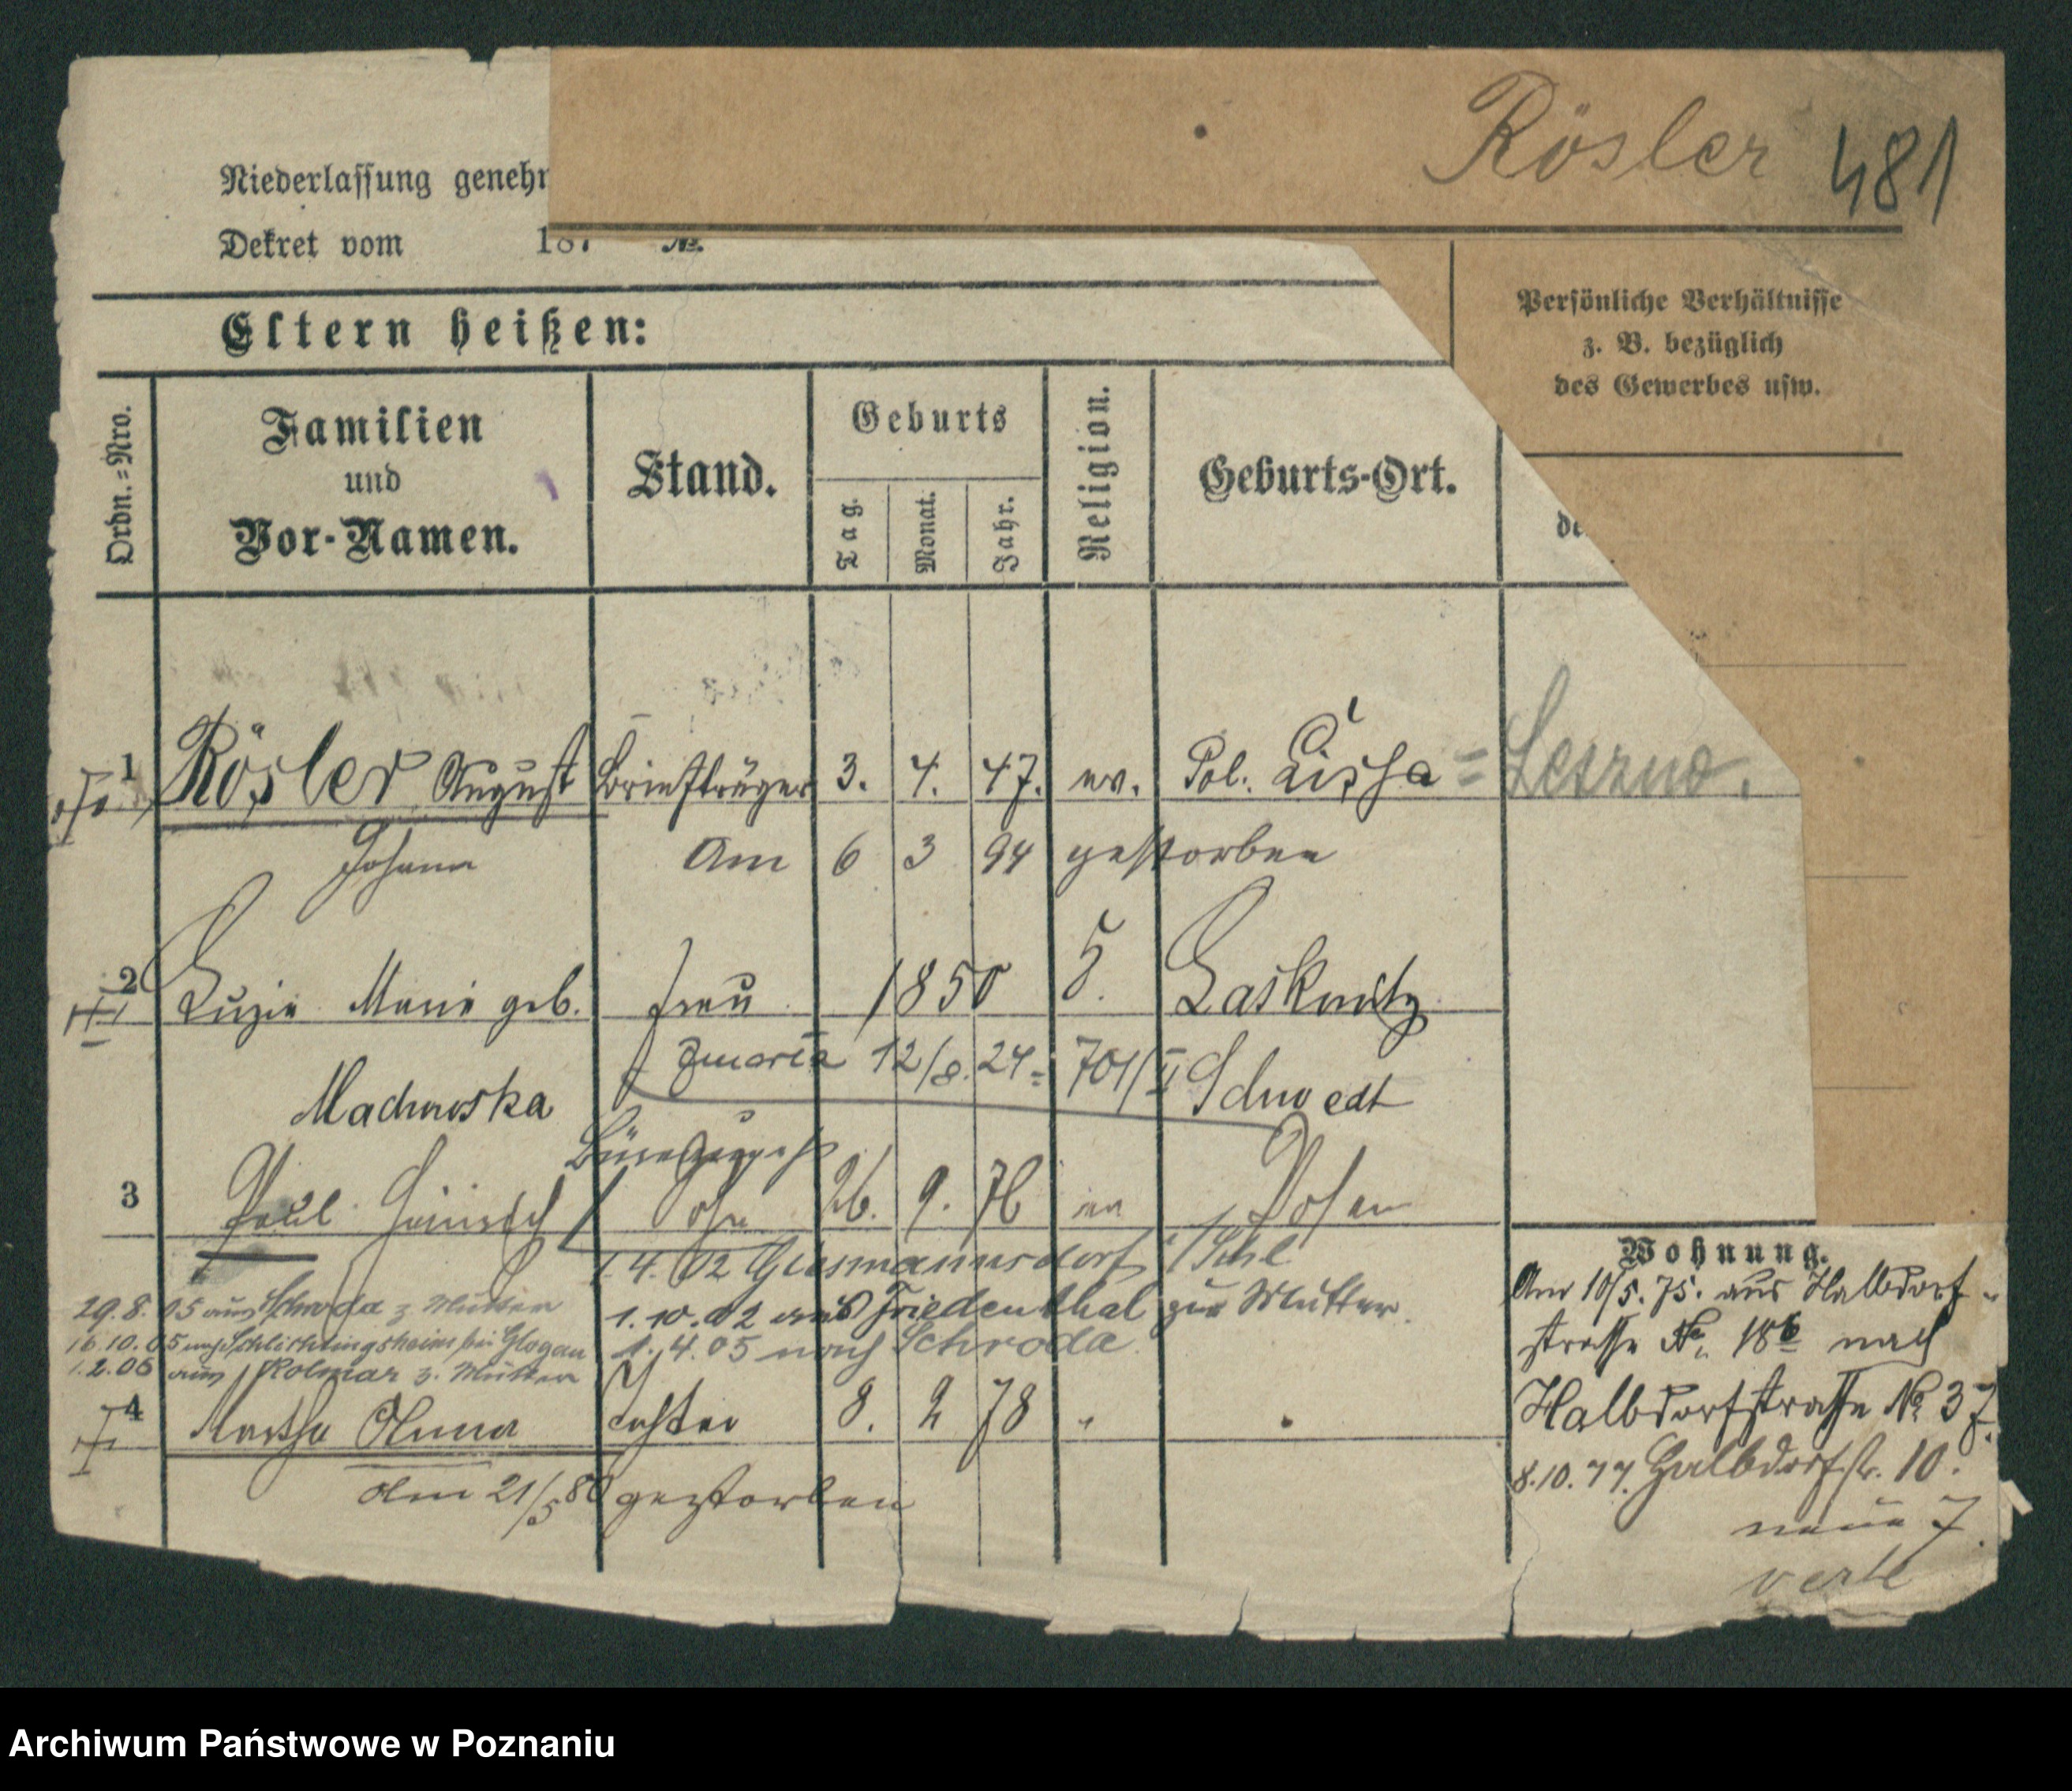 Rösler 481
Niederlassung genehr
Dekret vom 187 No.
Eltern heißen:
Persönliche Verhältnisse
z. B. bezüglich
des Gewerbes usw.
Ordn.-Nro.
Familien
und
Vor-Namen.
Stand.
Geburts
Tag.
Monat.
Jahr.
Religion.
Geburts-Ort.
de
1 Rösler August Briefträger 3. 4. 47. ev. Pol. Lissa = Leszno.
Johann Am 6 3 94 gestorben
2 Luzie Marie geb. Frau 1850 Laskowitz
zmarła 12/8. 24 = 701/II Schwedt
Machowska
3 Paul Heinrich Sohn 26. 9. 76 ev Posen
1. 4. 02 Giesmannsdorf i/Schl
29. 8. 05 aus Schroda z Mutter 1. 10. 02 aus Friedenthal zur Mutter.
16. 10. 05 nach Schlichtingsheim bei Glogau 1. 4. 05 nach Schroda.
1. 2. 06 aus Kolmar z. Mutter
4 Martha Anna Tochter 8. 2 78 " "
Am 21/5 80 gestorben
Wohnung.
Am 10/5. 75. aus Halbdorf-
strasse No. 18b nach
Halbdorfstrasse No 37.
8. 10. 77. Halbdorfstr. 10.
neue 7
verte
Archiwum Państwowe w Poznaniu